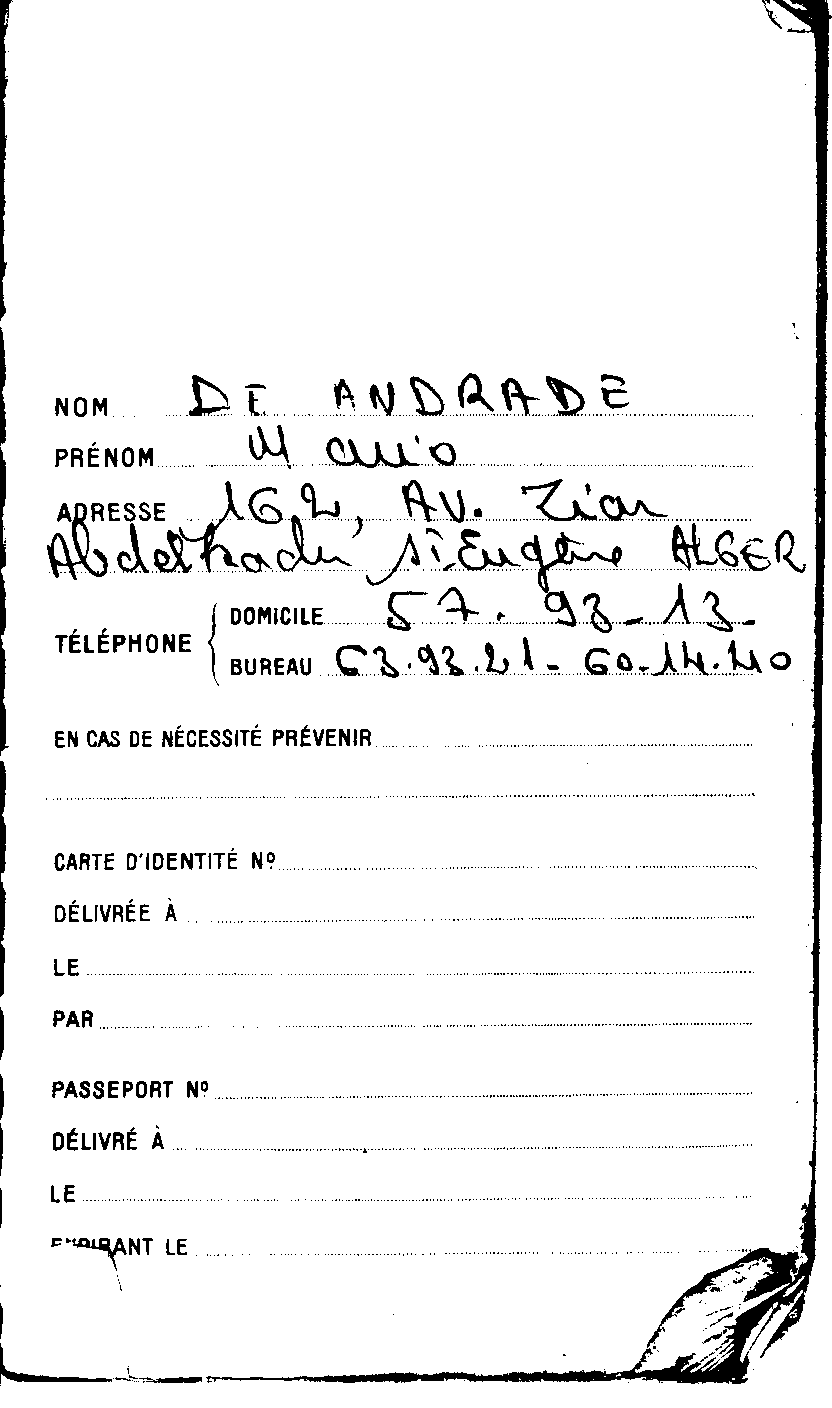 NOM DE ANDRADE
PRÉNOM Mario
ADRESSE 162, AV. Ziar
Abdelkader St. Eugène ALGER
TÉLÉPHONE DOMICILE 57.93-13-
BUREAU 63.93.21-60.14.40
EN CAS DE NÉCESSITÉ PRÉVENIR
CARTE D'IDENTITÉ Nº
DÉLIVRÉE À
LE
PAR
PASSEPORT Nº
DÉLIVRÉ À
LE
EXPIRANT LE